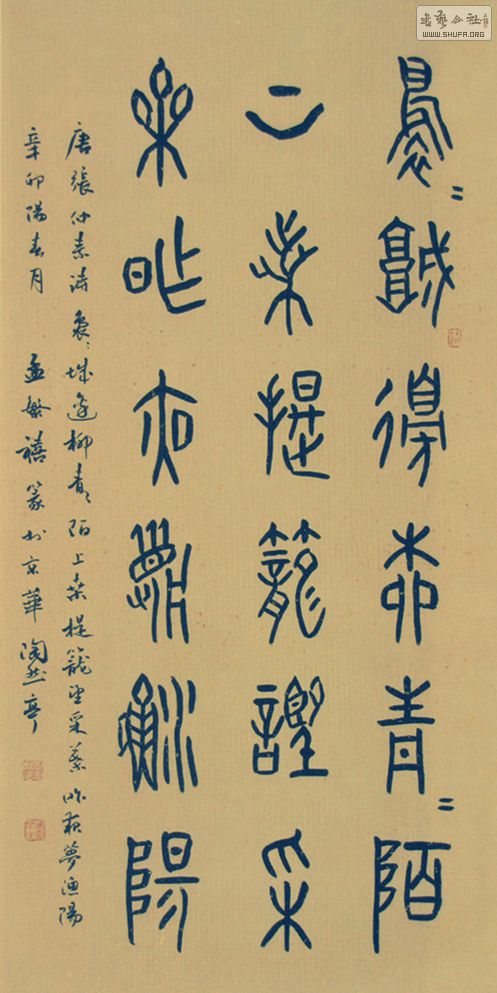 裊〻城邊柳青〻陌
上桑提籠望采
葉昨夜夢漁陽
唐張仲素詩裊〻城邊柳青〻陌上桑提籠望采葉昨夜夢漁陽
辛卯陽春月 孟繁禧篆於京華陶然亭
書藝公社
WWW.SHUFA.ORG